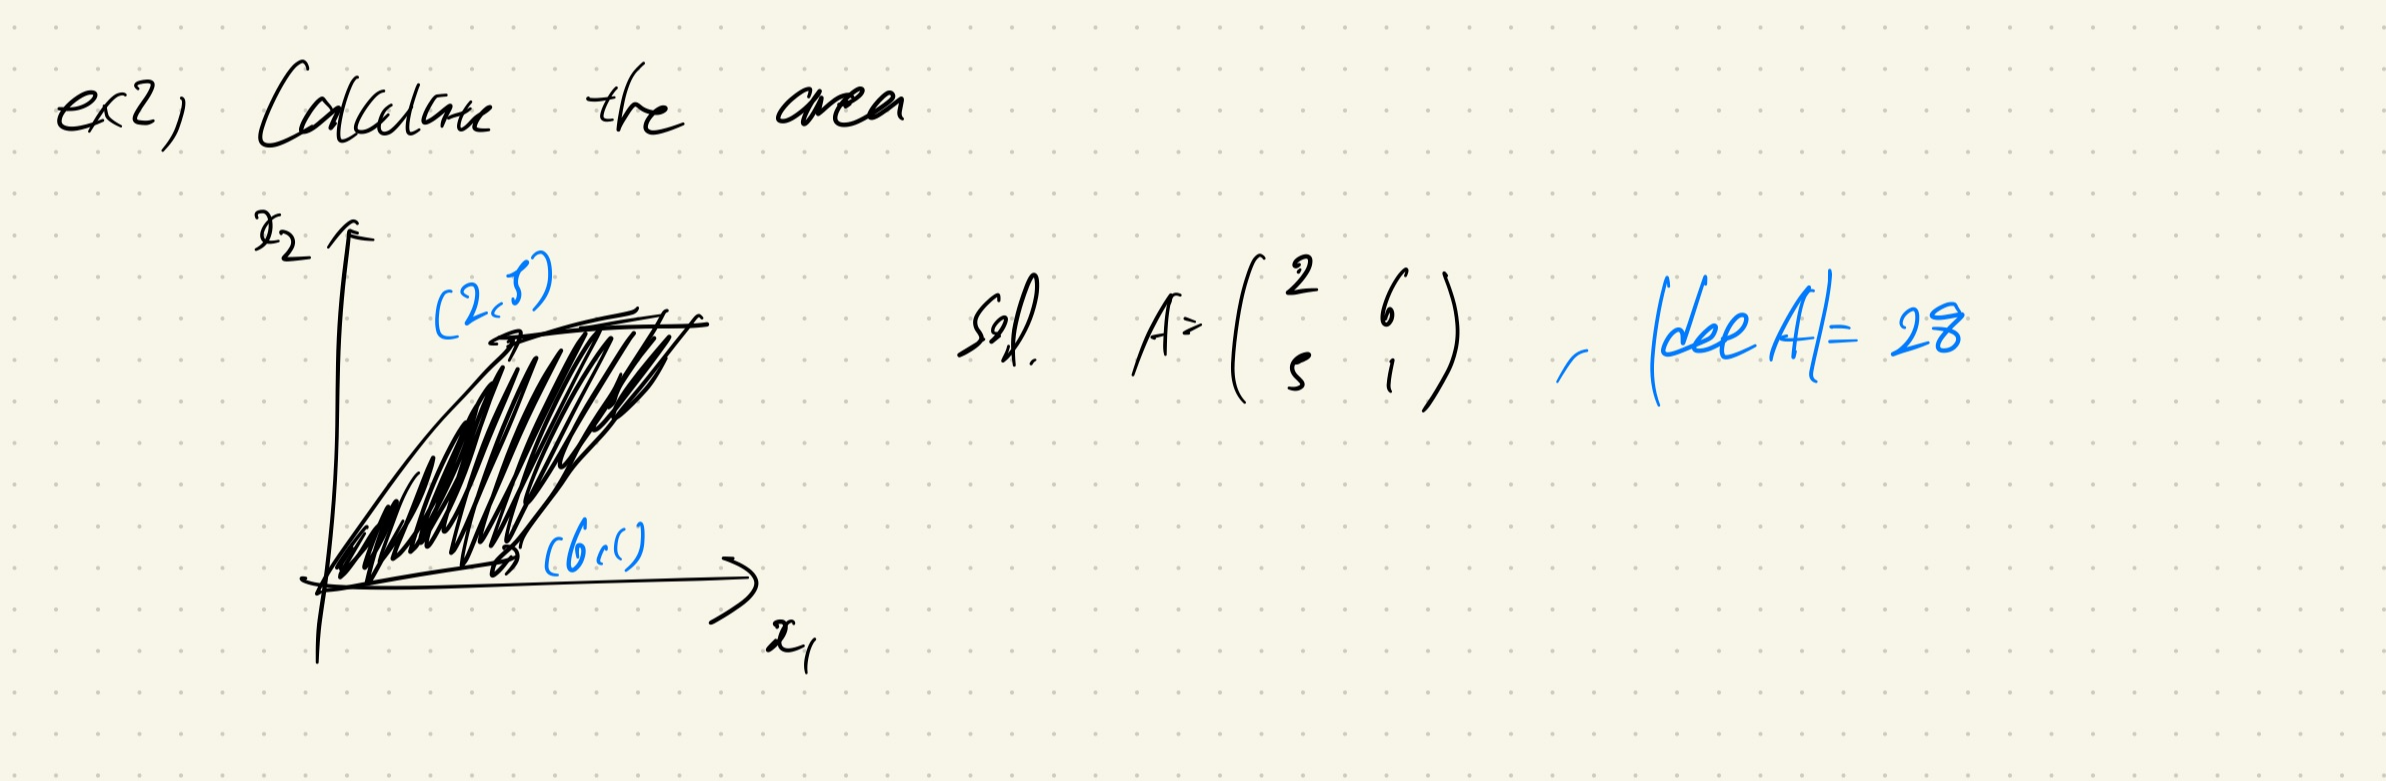 ex2) Calculate the area
x2
(2,5)
sol. A= ( 2 6
5 1 ) , |det A|= 28
(6,1)
x1